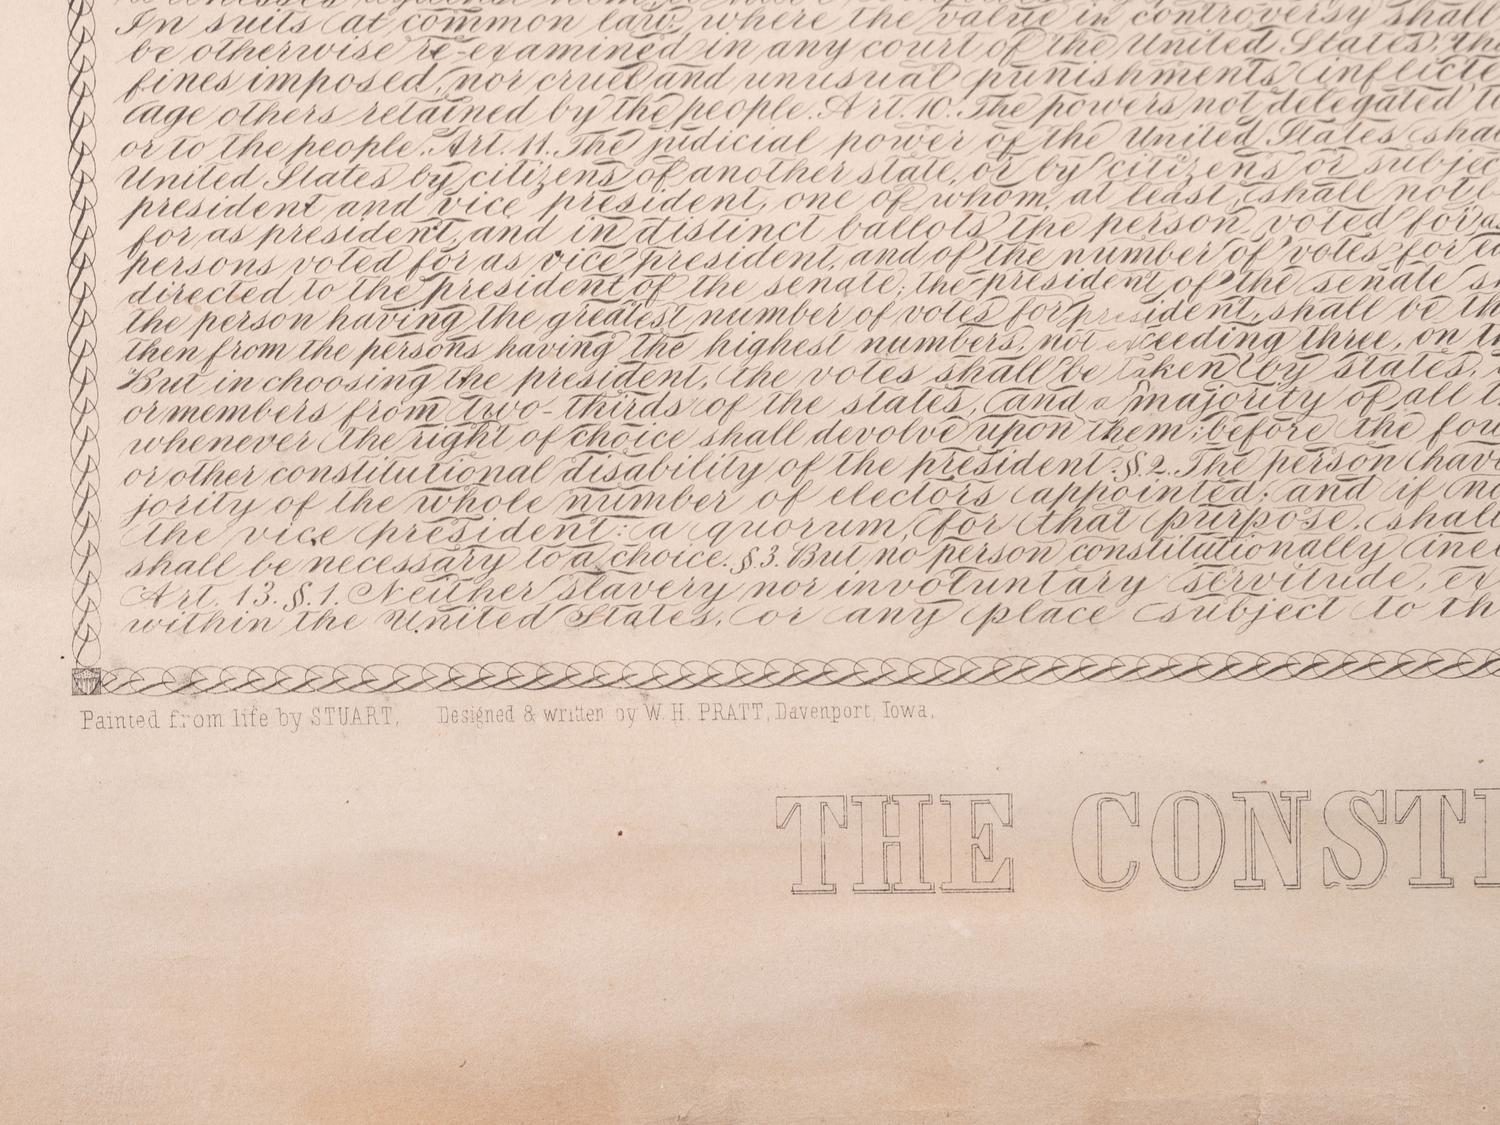 In suits at common law, where the value in controversy shall
be otherwise re-examined in any court of the United States, tha
fines imposed, nor cruel and unusual punishments inflicte
age others retained by the people. Art. 10. The powers not delegated t
or to the people. Art. 11. The judicial power of the United States sha
United States by citizens of another state, or by citizens or subjec
president and vice president, one of whom, at least, shall not
for as president, and in distinct ballots the person voted for as
persons voted for as vice president, and of the number of votes for ea
directed to the president of the senate; the president of the senate sh
the person having the greatest number of votes for president, shall be th
then from the persons having the highest numbers, not exceeding three, on th
But in choosing the president, the votes shall be taken by states,
or members from two-thirds of the states, and a majority of all t
whenever the right of choice shall devolve upon them, before the fou
or other constitutional disability of the president. §.2. The person hav
jority of the whole number of electors appointed; and if no
the vice president: a quorum, for that purpose, shall
shall be necessary to a choice. §3. But no person constitutionally ine
Art. 13. §.1. Neither slavery nor involuntary servitude, ex
within the United States, or any place subject to th
Painted from life by STUART, Designed & written by W. H. PRATT, Davenport, Iowa,
THE CONSTI